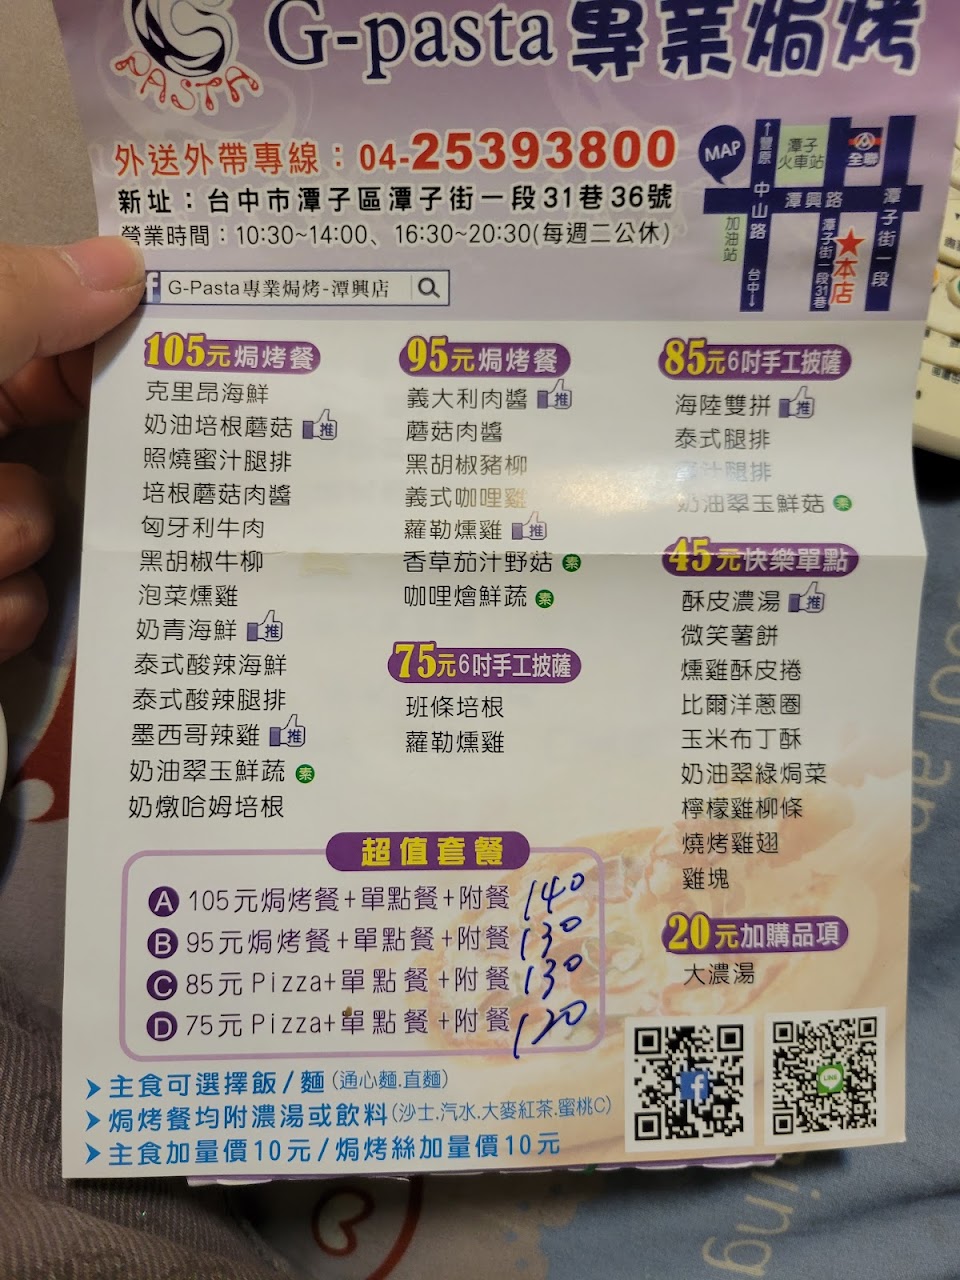 PASTA
G-pasta 專業焗烤
外送外帶專線：04-25393800
新址：台中市潭子區潭子街一段31巷36號
營業時間：10:30~14:00、16:30~20:30(每週二公休)
f G-Pasta專業焗烤-潭興店
MAP
↑豐原
中山路
台中↓
潭子火車站
全聯
潭興路
加油站
潭子街一段31巷
★本店
潭子街一段
105元焗烤餐
克里昂海鮮
奶油培根蘑菇 推
照燒蜜汁腿排
培根蘑菇肉醬
匈牙利牛肉
黑胡椒牛柳
泡菜燻雞
奶青海鮮 推
泰式酸辣海鮮
泰式酸辣腿排
墨西哥辣雞 推
奶油翠玉鮮蔬 素
奶燉哈姆培根
95元焗烤餐
義大利肉醬 推
蘑菇肉醬
黑胡椒豬柳
義式咖哩雞
蘿勒燻雞 推
香草茄汁野菇 素
咖哩燴鮮蔬 素
75元6吋手工披薩
班條培根
蘿勒燻雞
85元6吋手工披薩
海陸雙拼 推
泰式腿排
汁腿排
奶油翠玉鮮菇 素
45元快樂單點
酥皮濃湯 推
微笑薯餅
燻雞酥皮捲
比爾洋蔥圈
玉米布丁酥
奶油翠綠焗菜
檸檬雞柳條
燒烤雞翅
雞塊
20元加購品項
大濃湯
超值套餐
A 105元焗烤餐+單點餐+附餐 140
B 95元焗烤餐+單點餐+附餐 130
C 85元Pizza+單點餐+附餐 130
D 75元Pizza+單點餐+附餐 120
主食可選擇飯/麵(通心麵.直麵)
焗烤餐均附濃湯或飲料(沙士.汽水.大麥紅茶.蜜桃C)
主食加量價10元/焗烤絲加量價10元
f
LINE